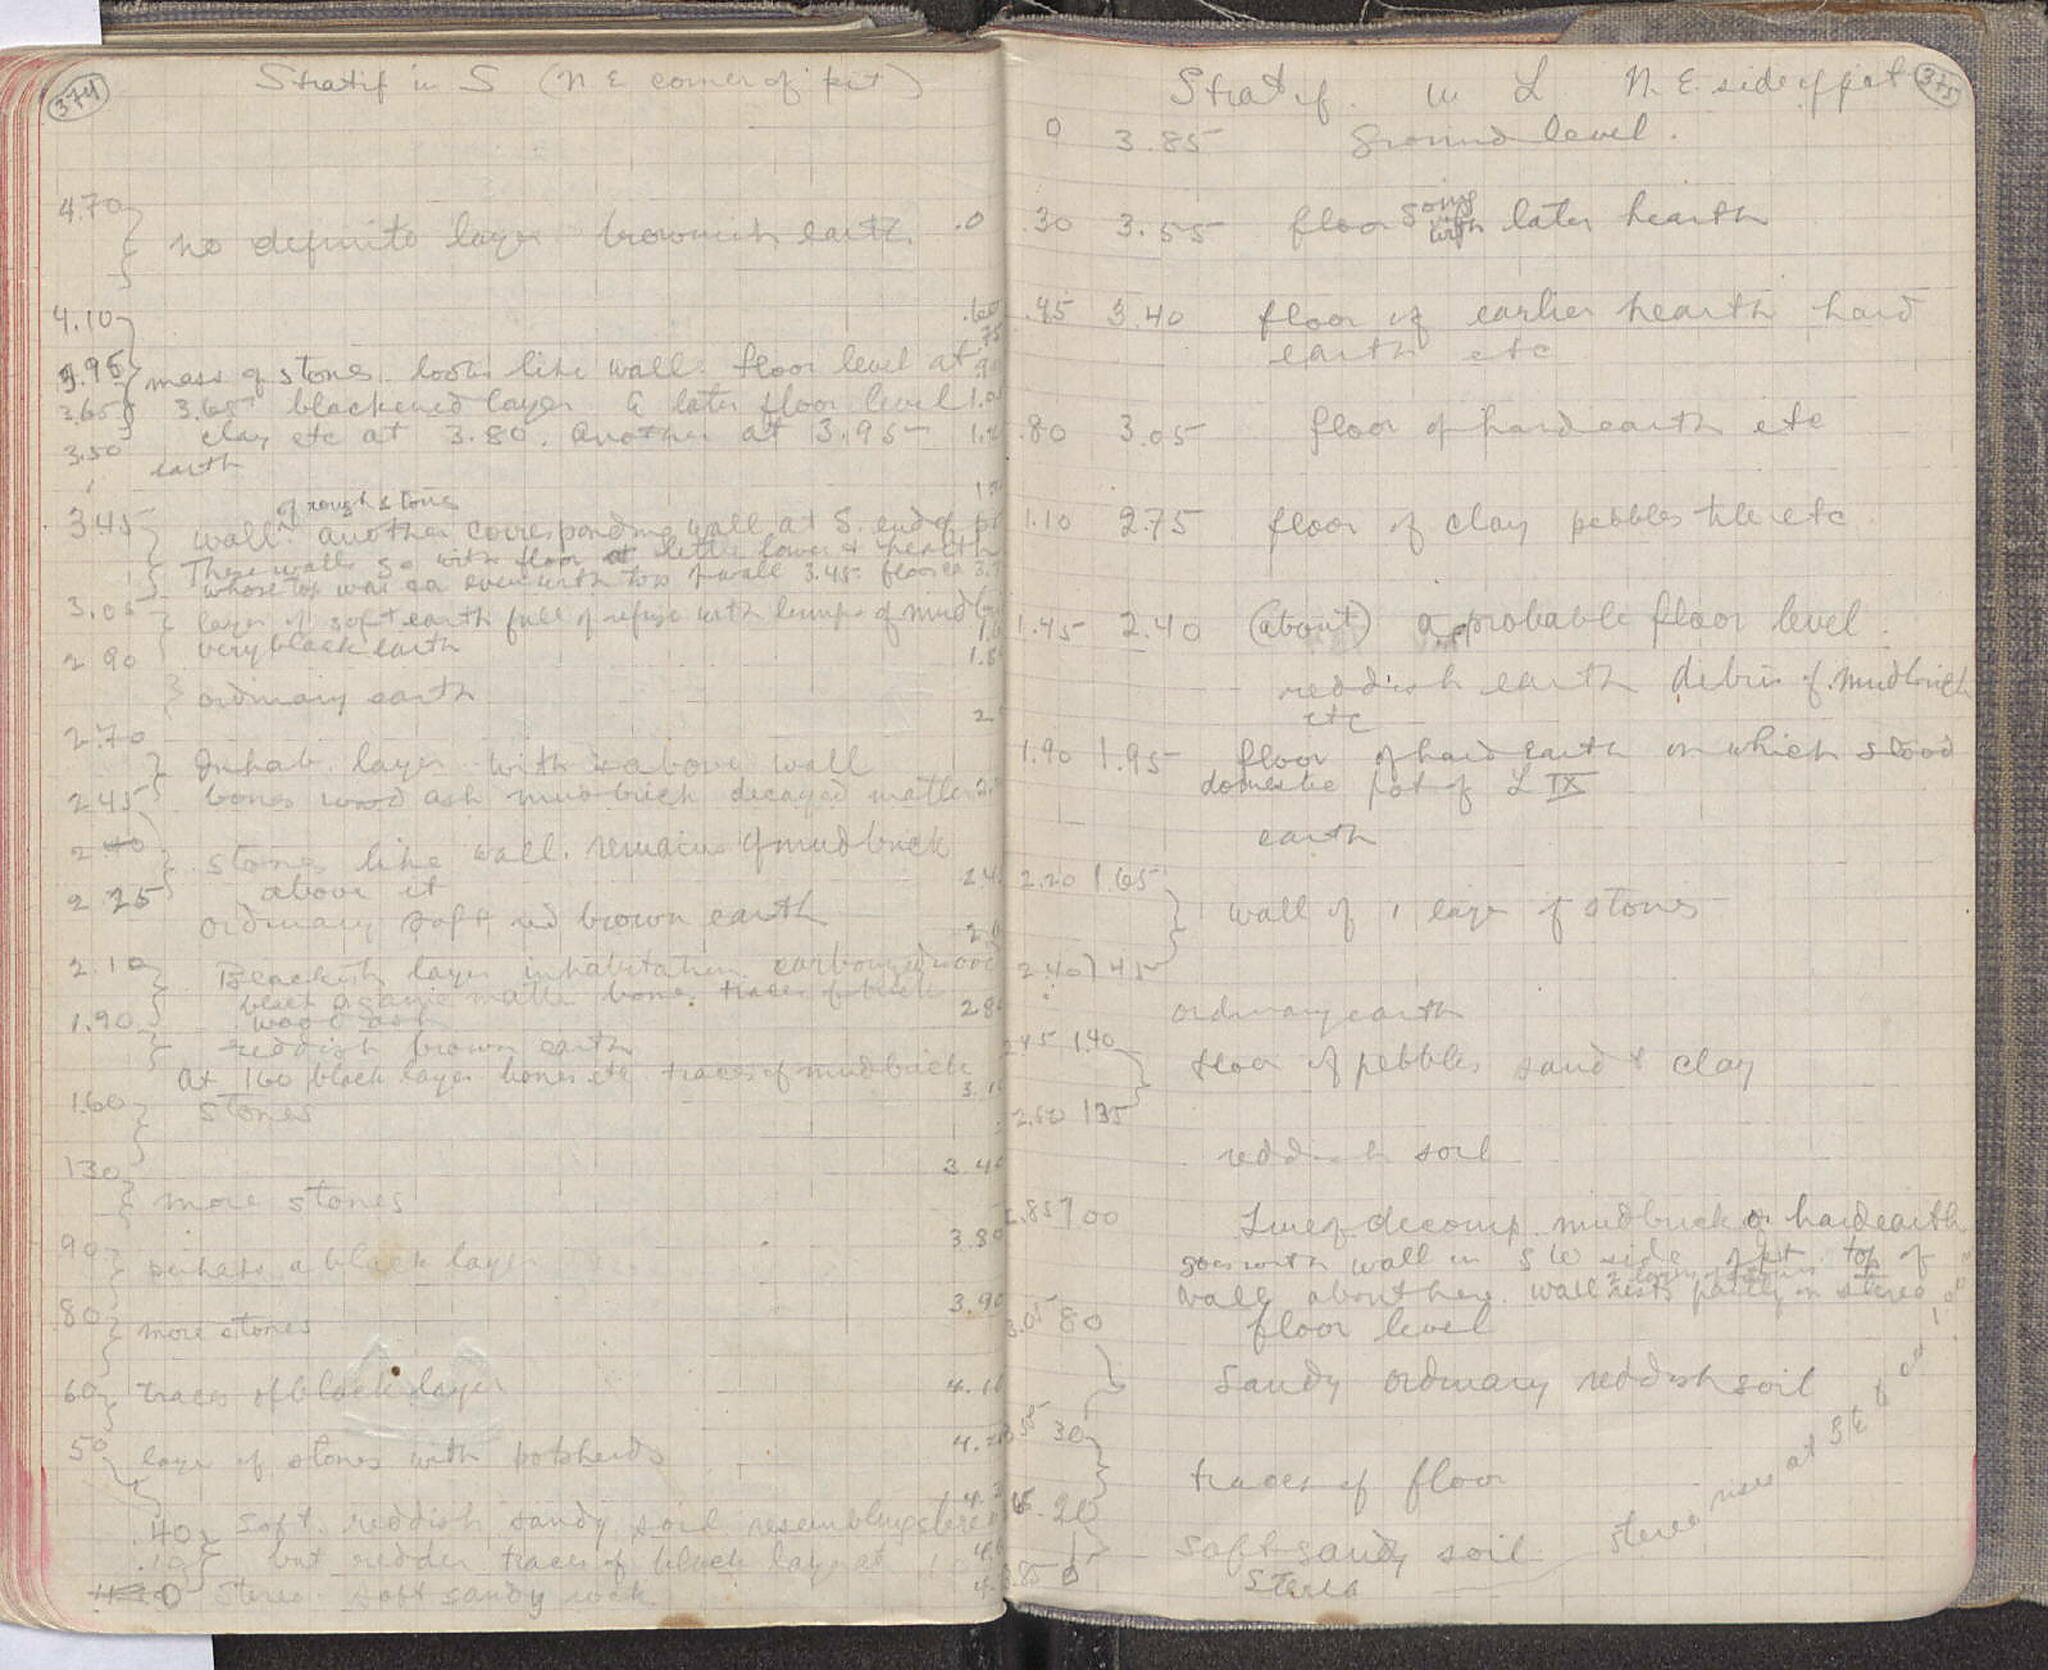 374
Stratif in S (N E corner of pit)
4.70
no definite layer brownish earth .0
4.10 .60
.75
3.95 mass of stones looks like wall. floor level at .90
3.65 3.65 blackened layer & later floor level
clay etc at 3.80. Another at 3.95
3.50 earth
of rough stones
3.45 wall. another corresponding wall at S. end of
These walls go with floor at little lower & hearth
whose top was even with top of wall 3.45 floor
3.05 layer of soft earth full of refuse with lumps of
very black earth
2 90
ordinary earth
2.70
Inhab. layer with above wall
2 45 bones wood ash mudbrick decayed matter
2 40
stones like wall. remains of mudbrick
2 25 above it
ordinary soft red brown earth
2.10 Blackish layer inhabitation carbonized wood
black organic matter bones traces of brick
1.90 wood ash
reddish brown earth
At 160 black layer bones etc traces of mudbrick
1.60 stones
130 3.40
more stones
90 3.80
perhaps a black layer
80 3.90
more stones
60 traces of black layer
50 layer of stones with potsherds
.40 soft reddish sandy soil resembling stereo
.10 but redder traces of black layer at
0 Stereo soft sandy rock
Stratif. in L N. E. side of pit 375
0 3.85 Ground level.
going
.30 3.55 floor with later hearth
.45 3.40 floor of earlier hearth hard
earth etc
.80 3.05 floor of hard earth etc
1.10 2.75 floor of clay pebbles tile etc
1.45 2.40 (about) a probable floor level
reddish earth debris of mudbrick
etc
1.90 1.95 floor of hard earth on which stood
domestic pot of L IX
earth
2.20 1.65
wall of 1 layer of stones
2.40 1 45
ordinary earth
2.45 1.40
floor of pebbles sand & clay
135
reddish soil
2.85 1 00 Line of decomp. mudbrick or hard earth
goes with wall in S W side of pit top of
wall about here. wall rests partly on stereo
3.05 80 floor level
Sandy ordinary reddish soil
30
traces of floor
20
soft sandy soil
3.85 0 Stereo
stereo rises at